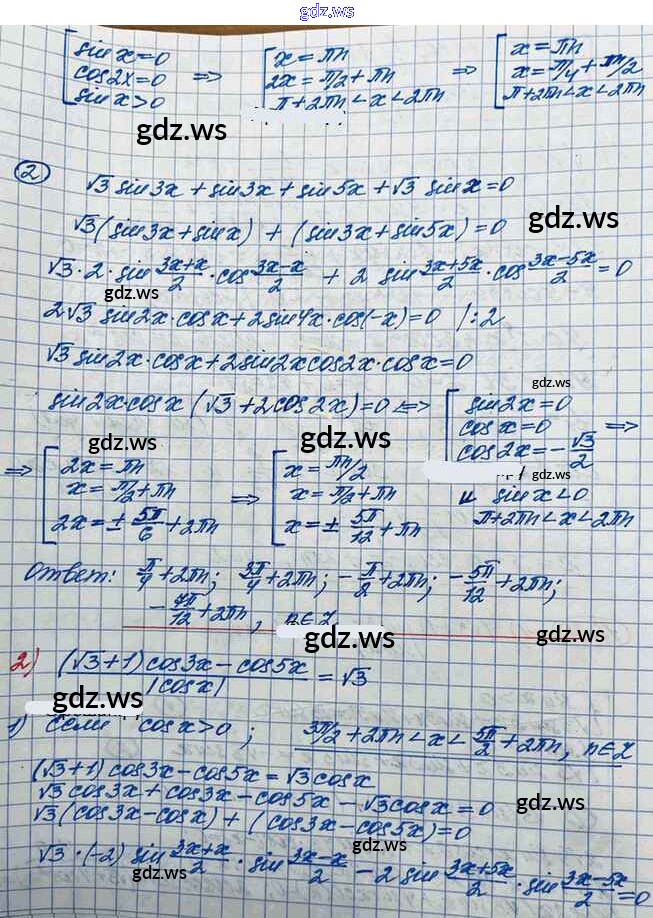 gdz.ws
[ sin x = 0 ; cos 2x = 0 ; sin x > 0 ⇒ [ x = πn ; 2x = π/2 + πn ; π + 2πn < x < 2πn ⇒ [ x = πn ; x = π/4 + πn/2 ; π + 2πn < x < 2πn
gdz.ws
gdz.ws
② √3 sin 3x + sin 3x + sin 5x + √3 sin x = 0
√3 (sin 3x + sin x) + (sin 3x + sin 5x) = 0
gdz.ws
√3 · 2 · sin (3x+x)/2 · cos (3x-x)/2 + 2 sin (3x+5x)/2 · cos (3x-5x)/2 = 0
gdz.ws
2√3 sin 2x · cos x + 2 sin 4x · cos(-x) = 0 /:2
√3 sin 2x · cos x + 2 sin 2x cos 2x · cos x = 0
gdz.ws
sin 2x · cos x (√3 + 2 cos 2x) = 0 ⇔ [ sin 2x = 0 ; cos x = 0 ; cos 2x = -√3/2 ⇒
и sin x < 0
π + 2πn < x < 2πn
gdz.ws
gdz.ws
gdz.ws
⇒ [ 2x = πn ; x = π/2 + πn ; 2x = ± 5π/6 + 2πn ⇒ [ x = πn/2 ; x = π/2 + πn ; x = ± 5π/12 + πn
Ответ: π/4 + 2πn; 3π/4 + 2πn; -π/2 + 2πn; -5π/12 + 2πn;
-7π/12 + 2πn, n∈Z
gdz.ws
gdz.ws
2) ((√3+1) cos 3x - cos 5x)/|cos x| = √3
gdz.ws
1) если cos x > 0; 3π/2 + 2πn < x < 5π/2 + 2πn, n∈Z
gdz.ws
(√3+1) cos 3x - cos 5x = √3 cos x
√3 cos 3x + cos 3x - cos 5x - √3 cos x = 0
gdz.ws
√3 (cos 3x - cos x) + (cos 3x - cos 5x) = 0
√3 · (-2) sin (3x+x)/2 · sin (3x-x)/2 - 2 sin (3x+5x)/2 · sin (3x-5x)/2 = 0
gdz.ws
gdz.ws